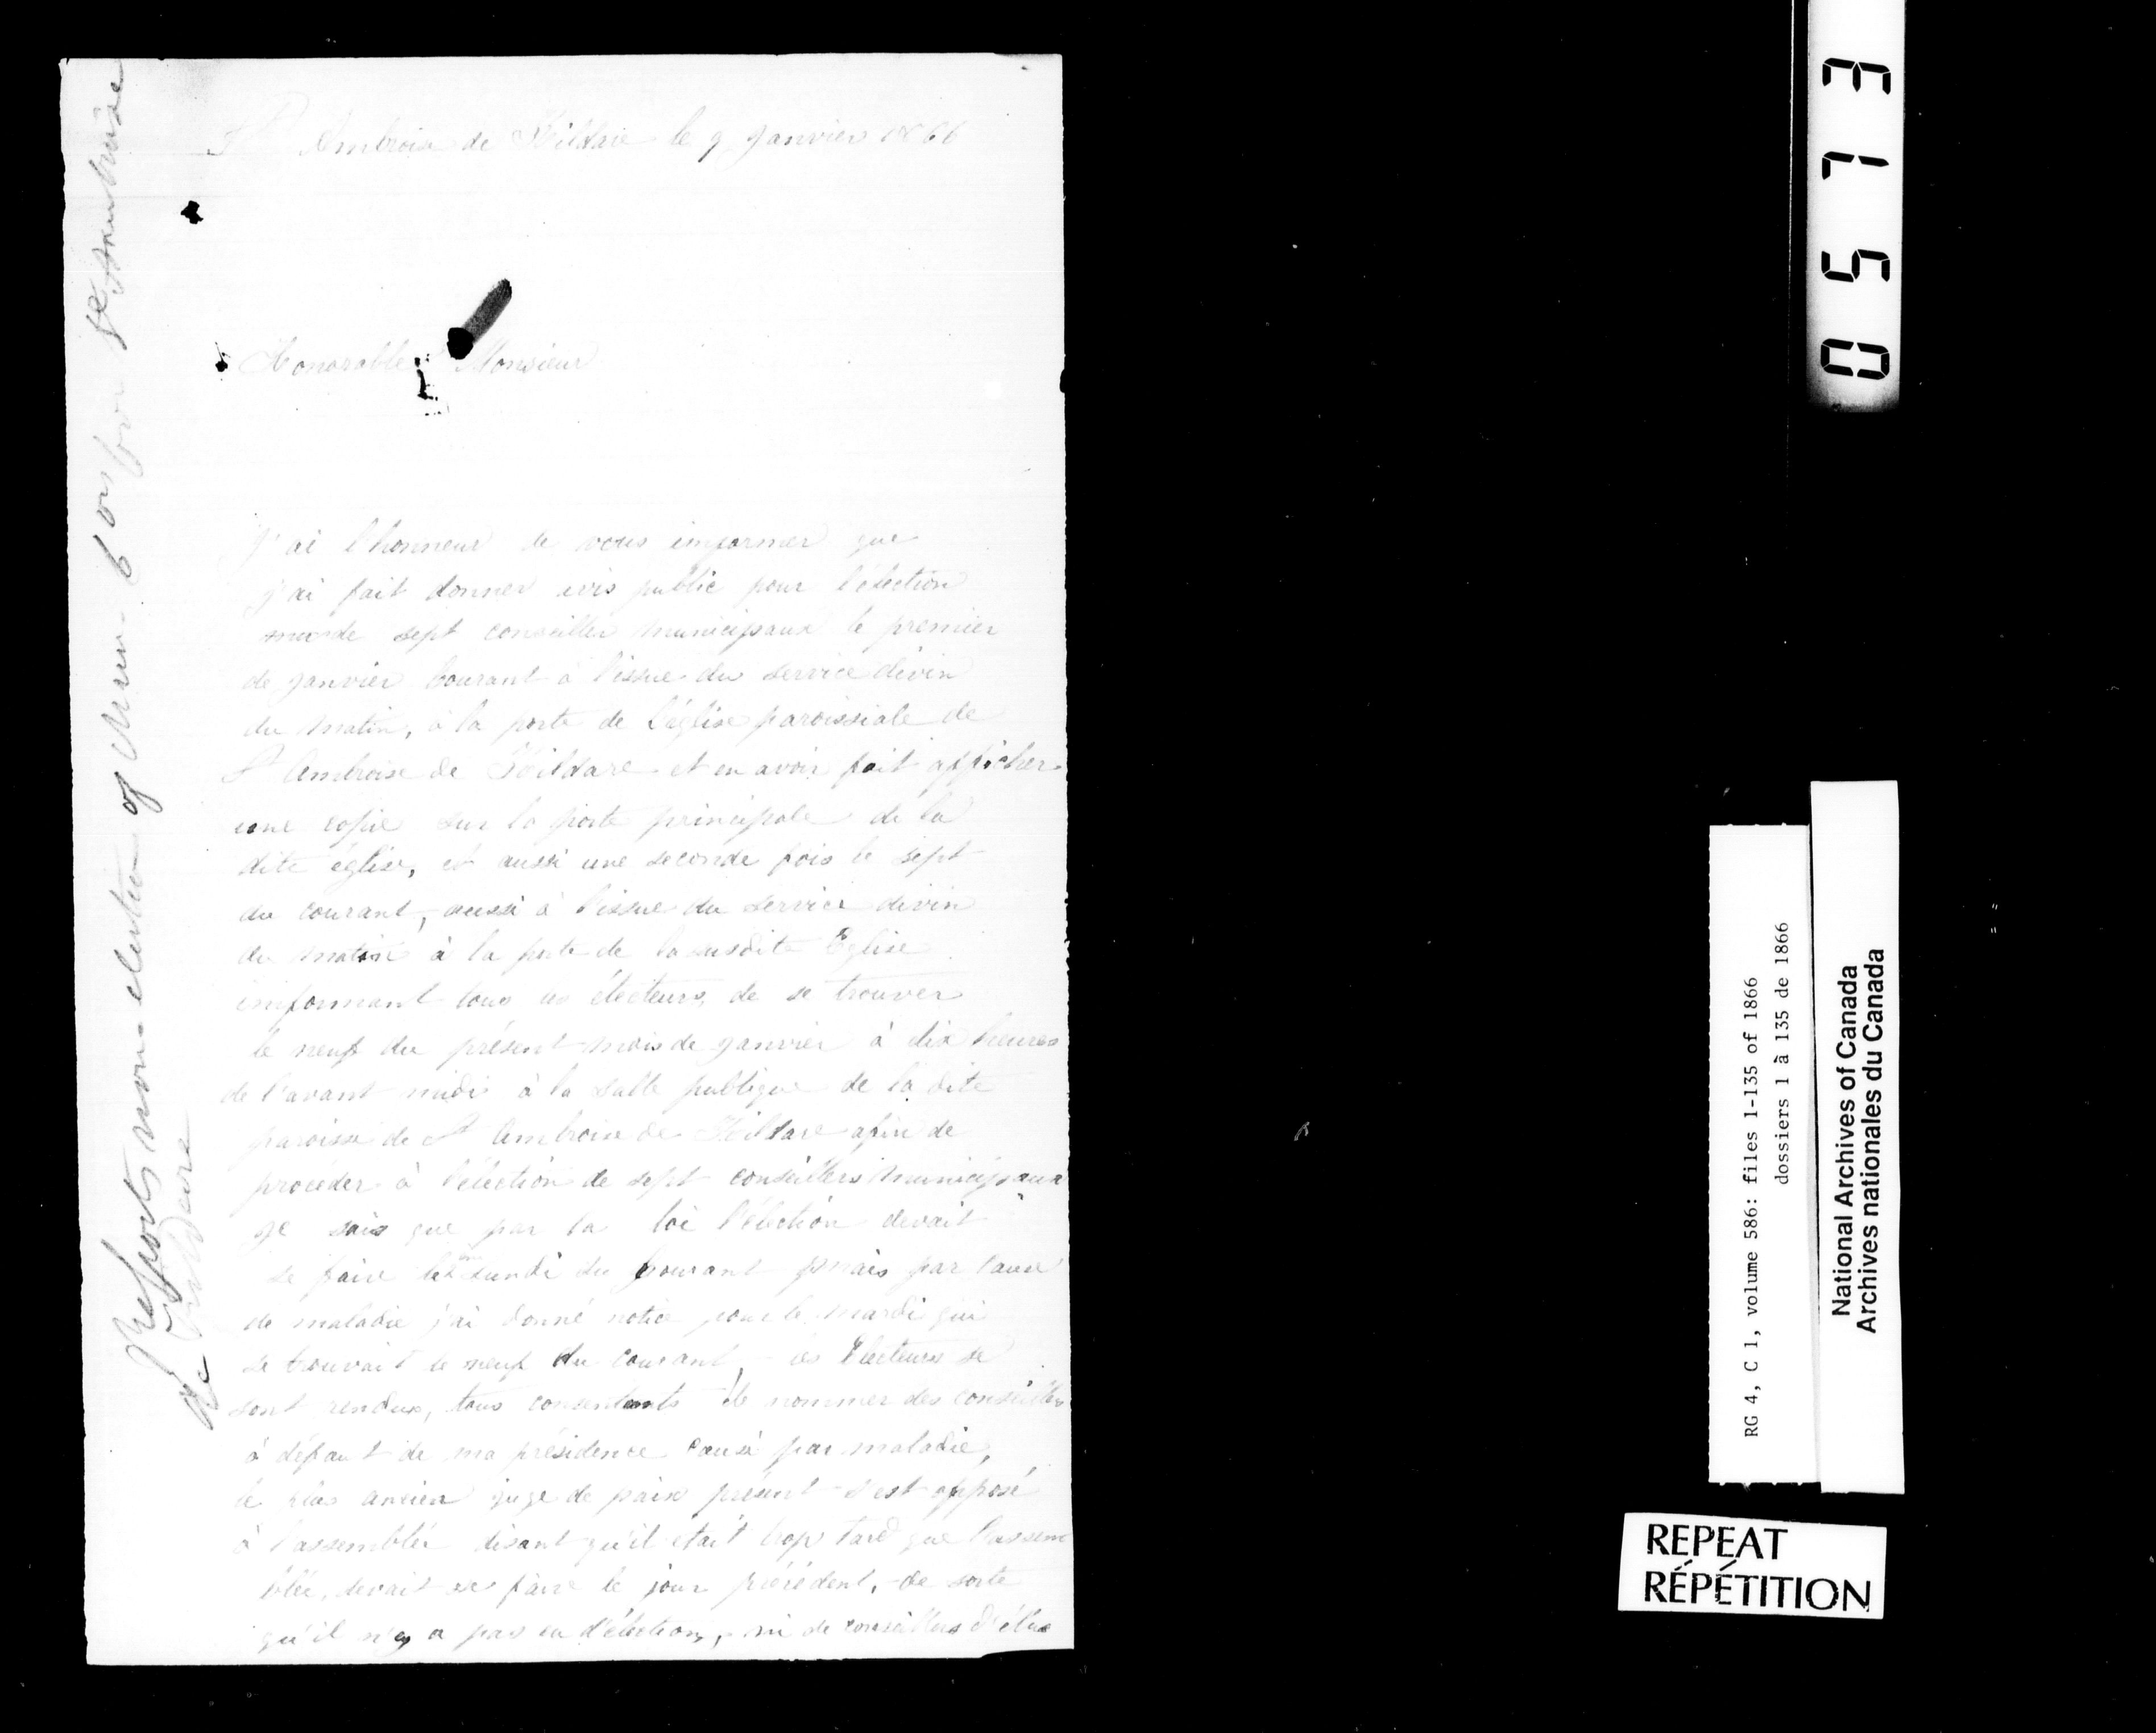 St Ambroise de Kildare le 9 Janvier 1866
Honorable Monsieur
J'ai l'honneur de vous informer que
j'ai fait donner avis public pour l'élection
de sept conseiller municipaux le premier
de janvier courant à l'issue du service divin
du matin, à la porte de l'église paroissiale de
St Ambroise de Kildare et en avoir fait afficher
une copie sur la porte principale de la
dite église, et aussi une seconde fois le sept
du courant, aussi à l'issue du service divin
du matin à la porte de la susdite Eglise
informant tous les électeurs, de se trouver
le neuf du présent mois de janvier à dix heures
de l'avant midi à la salle publique de la dite
paroisse de St Ambroise de Kildare afin de
procéder à l'élection de sept conseillers municipaux
je sais que par la loi l'élection devait
se faire le lundi du courant mais par cause
de maladie j'ai donné notice pour le mardi qui
se trouvait le neuf du courant, les Electeurs se
sont rendus, tous consentants de nommer des conseillers
à défaut de ma présidence causé par maladie,
le plus ancien juge de paix présent s'est opposé
à l'assemblée disant qu'il etait trop tard que l'assem
blée, devait se faire le jour précédent, de sorte
qu'il n'y a pas eu d'élection, ni de conseillers d'élus
Reports non-election of Mun. Cors for St Ambroise
de Kildare
0573
RG 4, C 1, volume 586: files 1-135 of 1866
dossiers 1 à 135 de 1866
National Archives of Canada
Archives nationales du Canada
REPEAT
RÉPÉTITION